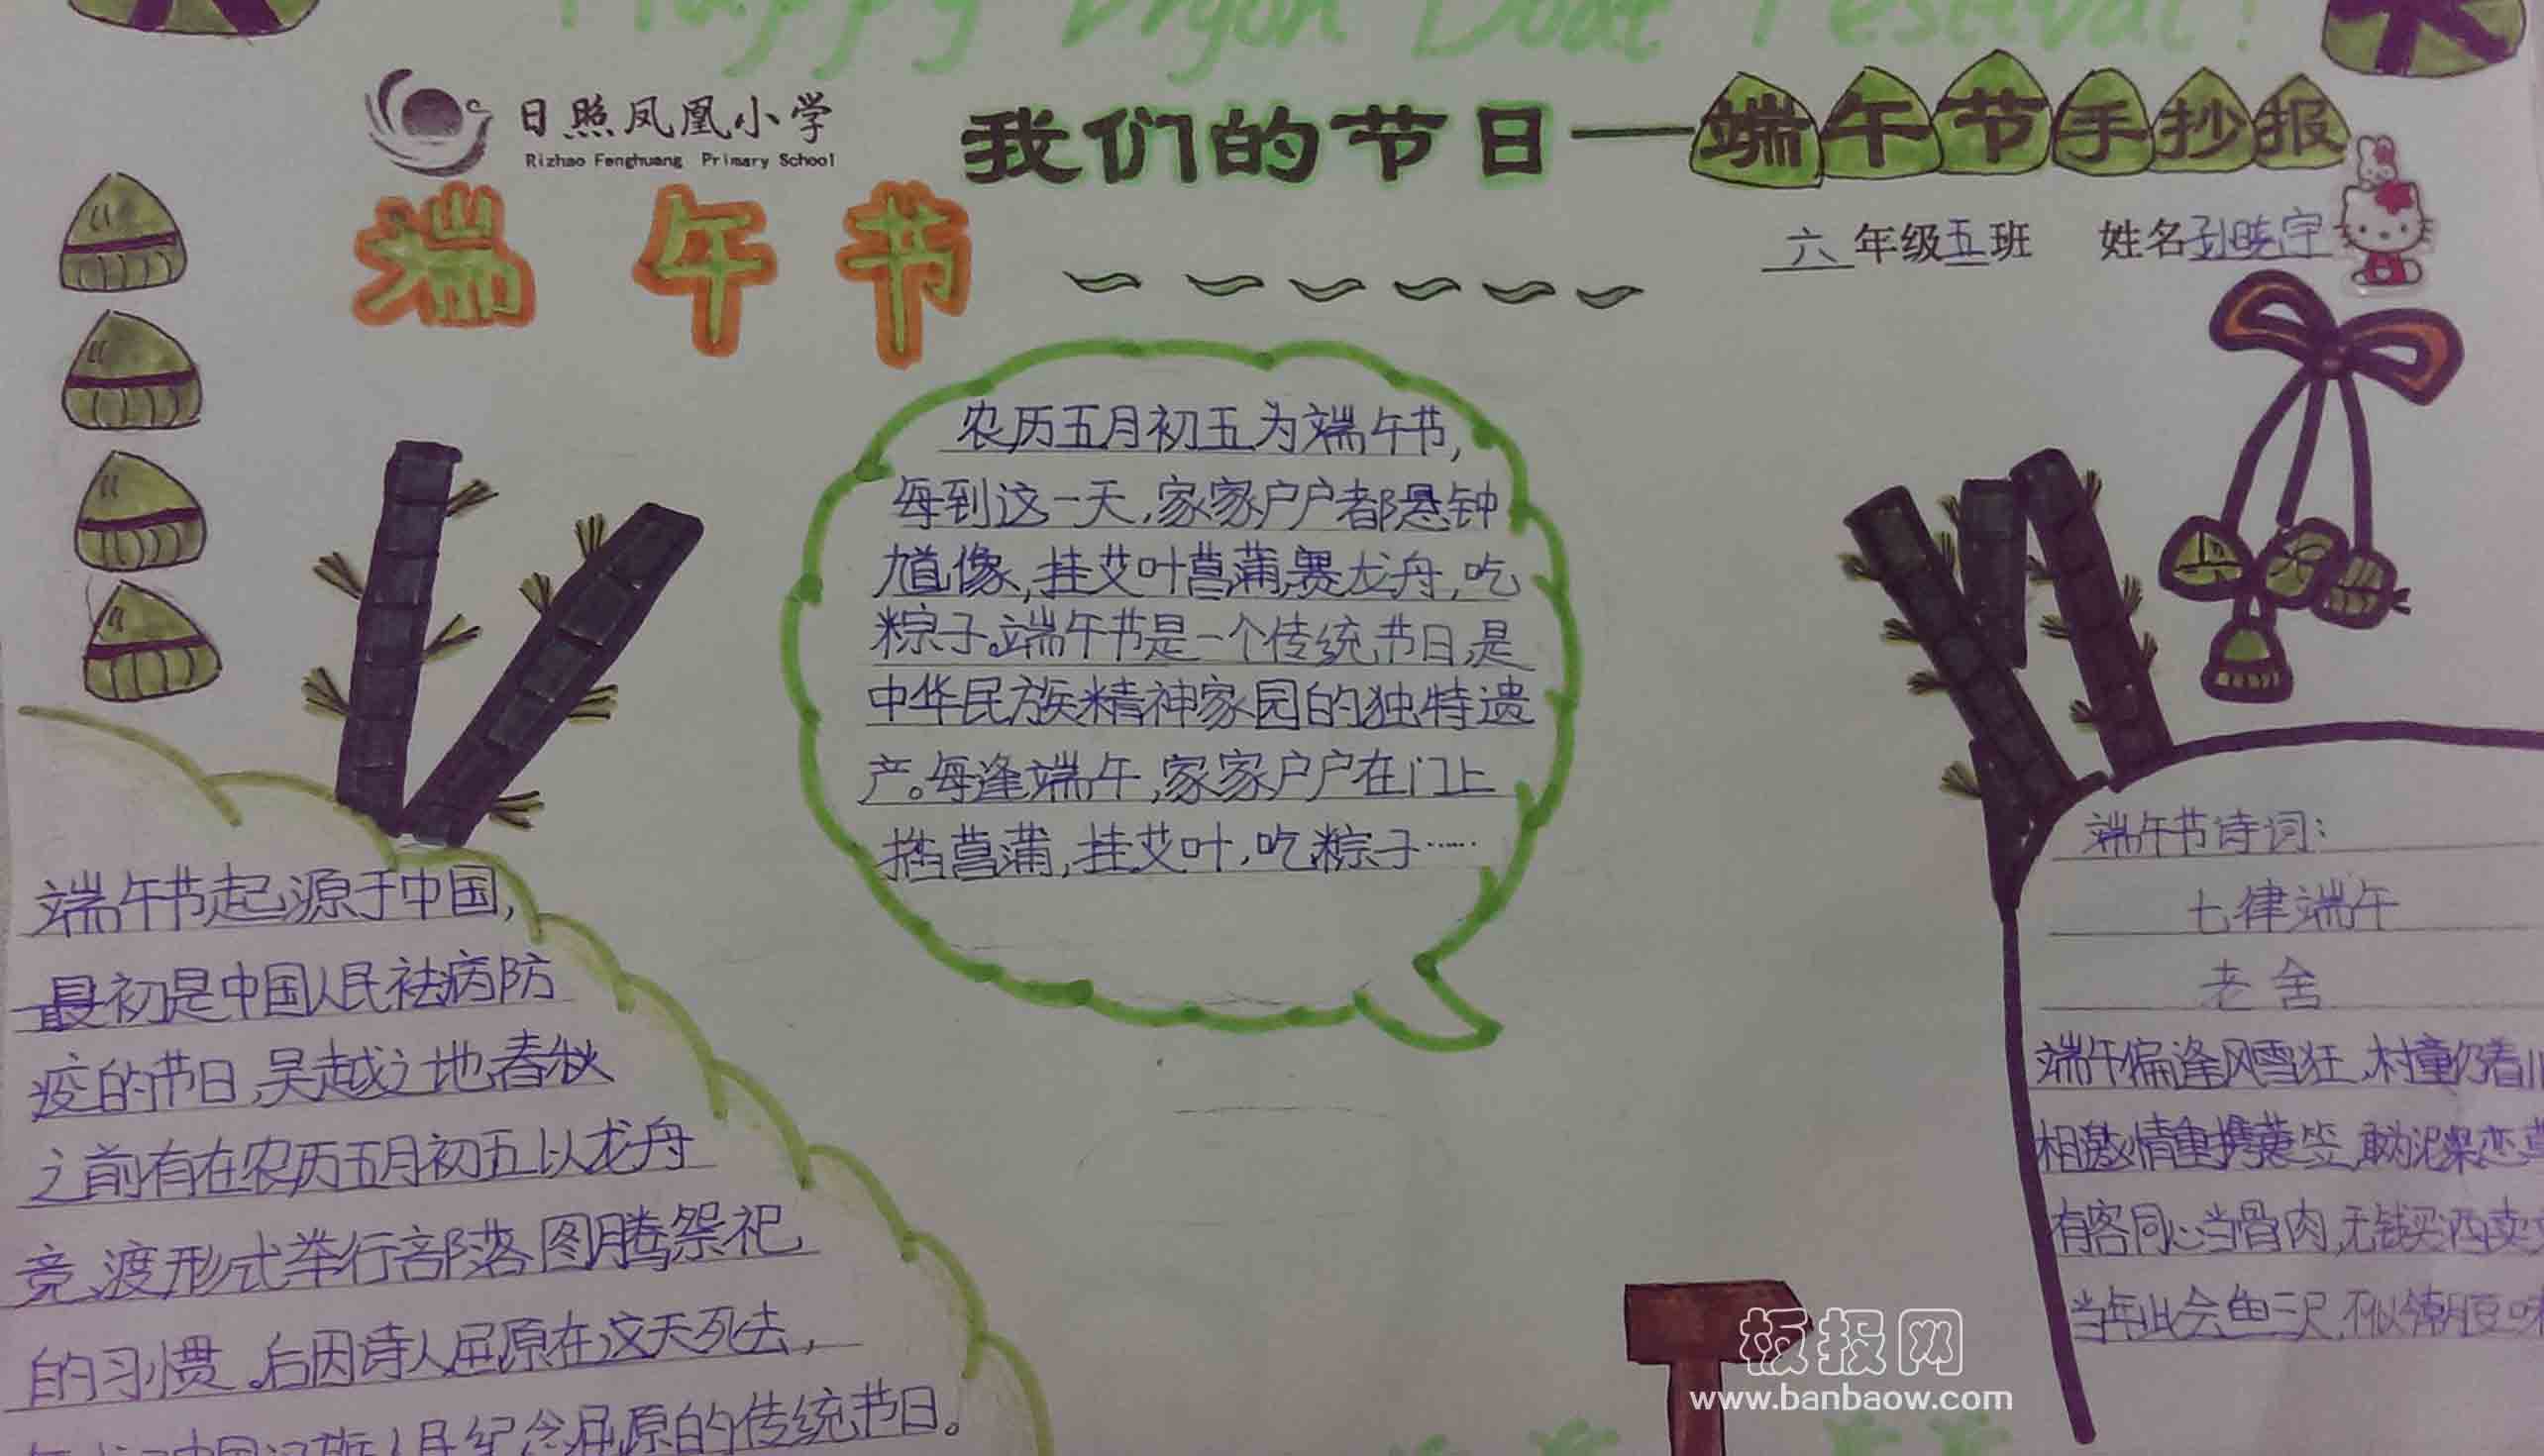 Happy Drgon Boat Festival!
日照凤凰小学
Rizhao Fenghuang Primary School
我们的节日——端午节手抄报
六年级五班 姓名孙晓宇
端午节
农历五月初五为端午节,
每到这一天,家家户户都悬钟
馗像,挂艾叶菖蒲,赛龙舟,吃
粽子。端午节是一个传统节日,是
中华民族精神家园的独特遗
产。每逢端午,家家户户在门上
插菖蒲,挂艾叶,吃粽子……
端午节起源于中国,
最初是中国人民祛病防
疫的节日,吴越之地春秋
之前有在农历五月初五以龙舟
竞渡形式举行部落图腾祭祀
的习惯。后因诗人屈原在这天死去,
中国汉族人民纪念屈原的传统节日。
端午节诗词:
七律端午
老舍
端午偏逢风雪狂,村童仍着
相邀情重携蓑笠,敢为泥深恋
有客同心当骨肉,无钱买酒卖
当年此会鱼三尺,不似今朝豆味
板报网
www.banbaow.com